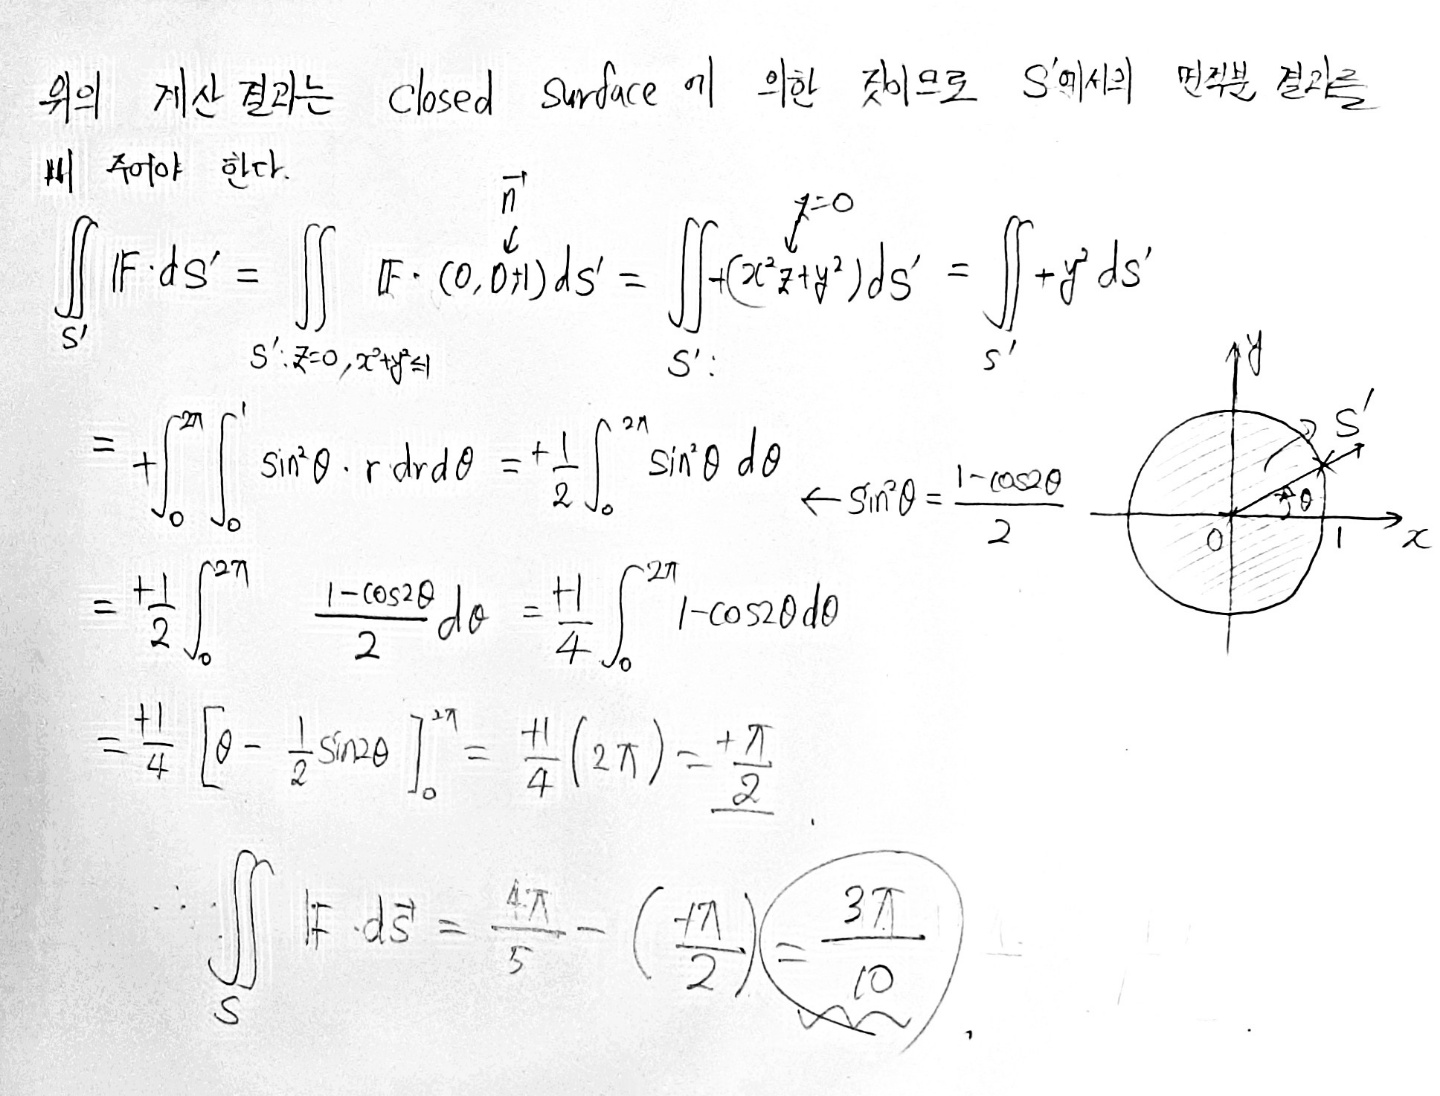 위의 계산 결과는 closed surface 에 의한 것이므로 S'에서의 면적분 결과를
빼 주어야 한다.
∬_{S'} 𝔽·dS' = ∬_{S': z=0, x²+y²≤1} 𝔽·(0,0,+1)dS' = ∬_{S':} +(x²z+y²)dS' = ∬_{S'} +y² dS'
n⃗ ↓
z=0 ↓
= +∫₀^{2π} ∫₀^1 sin²θ · r dr dθ = +1/2 ∫₀^{2π} sin²θ dθ ← sin²θ = (1-cos2θ)/2
y
S'
θ
0 1 x
= +1/2 ∫₀^{2π} (1-cos2θ)/2 dθ = +1/4 ∫₀^{2π} 1-cos2θ dθ
= +1/4 [θ - 1/2 sin2θ]₀^{2π} = +1/4 (2π) = +π/2 .
∴ ∬_S 𝔽·ds⃗ = 4π/5 - (+π/2) = 3π/10 .